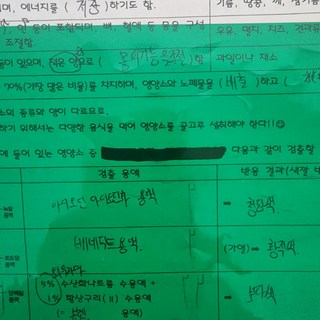 며, 에너지를 ( 저장 )하기도 함.
인 등이 포함되며, 뼈, 혈액 등 몸을 구성
우유, 멸치, 치즈, 견과류
조절함
들이 있으며, 적은 양으로 ( 몸의 기능을 조절 )함
과일이나 채소
70%(가장 많은 비율)를 차지하며, 영양소와 노폐물을 ( 배출 )하고 (
소의 종류와 양이 다르므로,
하기 위해서는 다양한 음식을 먹어 영양소를 골고루 섭취해야 한다!!☺
에 들어 있는 영양소 중
다음과 같이 검출할
검출 용액
반응 결과(색깔
녹말
용액
아이오딘-아이오딘화 용액
⇒ 청람색
포도당
용액
베네딕트 용액
(가열) ⇒ 황적색
5% 수산화나트륨 수용액 +
1% 황산구리(Ⅱ) 수용액
(= 뷰렛 용액)
⇒ 보라색